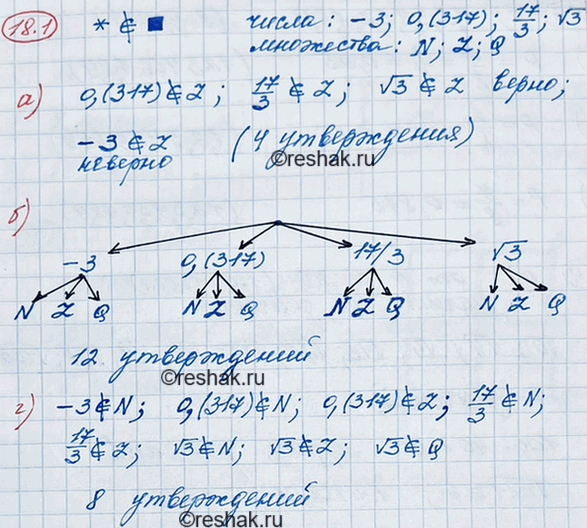 18.1 * ∉ ■ числа: -3; 0,(317); 17/3; √3
множества: N; Z; Q
а) 0,(317) ∉ Z; 17/3 ∉ Z; √3 ∉ Z верно;
-3 ∉ Z (4 утверждения)
неверно
©reshak.ru
б)
-3 0,(317) 17/3 √3
N Z Q N Z Q N Z Q N Z Q
12 утверждений
©reshak.ru
г) -3 ∉ N; 0,(317) ∉ N; 0,(317) ∉ Z; 17/3 ∉ N;
17/3 ∉ Z; √3 ∉ N; √3 ∉ Z; √3 ∉ Q
8 утверждений
©reshak.ru